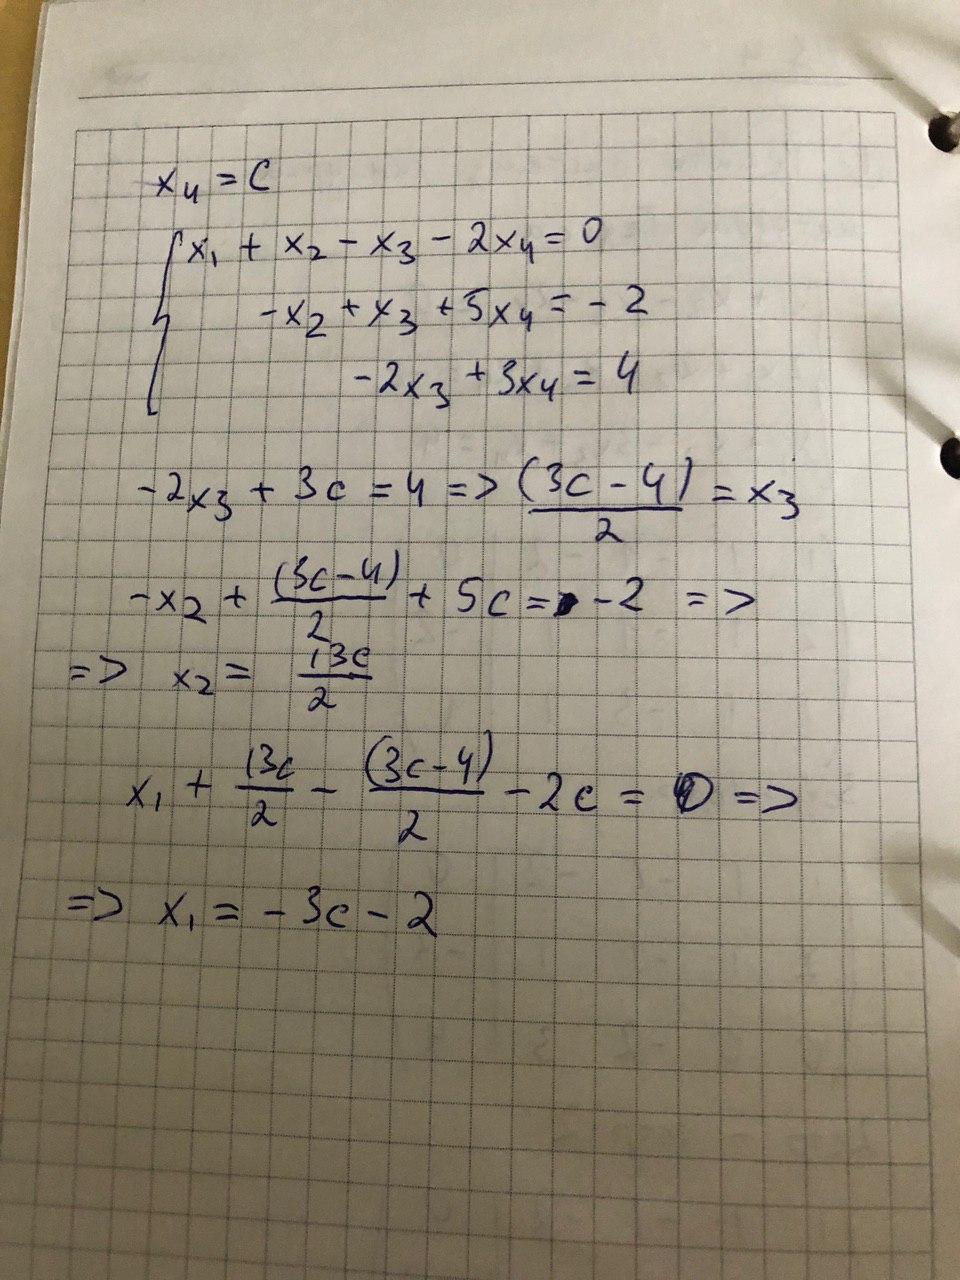 x₄ = C
x₁ + x₂ - x₃ - 2x₄ = 0
-x₂ + x₃ + 5x₄ = -2
-2x₃ + 3x₄ = 4
-2x₃ + 3c = 4 => (3c - 4)/2 = x₃
-x₂ + (3c-4)/2 + 5c = -2 =>
=> x₂ = 13c/2
x₁ + 13c/2 - (3c-4)/2 - 2c = 0 =>
=> x₁ = -3c - 2